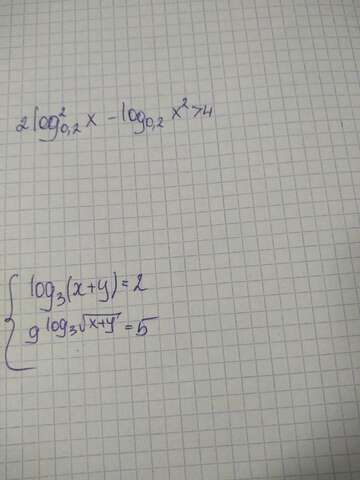 2 log²₀,₂ x - log₀,₂ x² > 4
log₃(x+y) = 2
9^(log₃√(x+y)) = 5